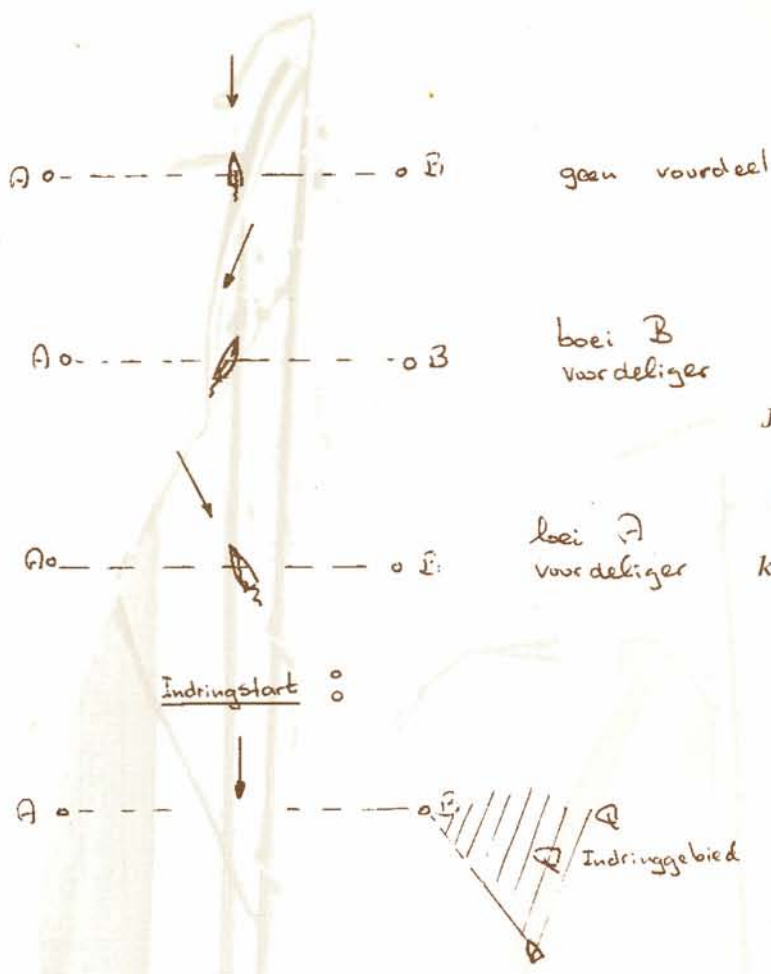 A B geen voordeel
A B boei B
voordeliger
j
A B boei A
voordeliger k
Indringstart :
A B
Indringgebied